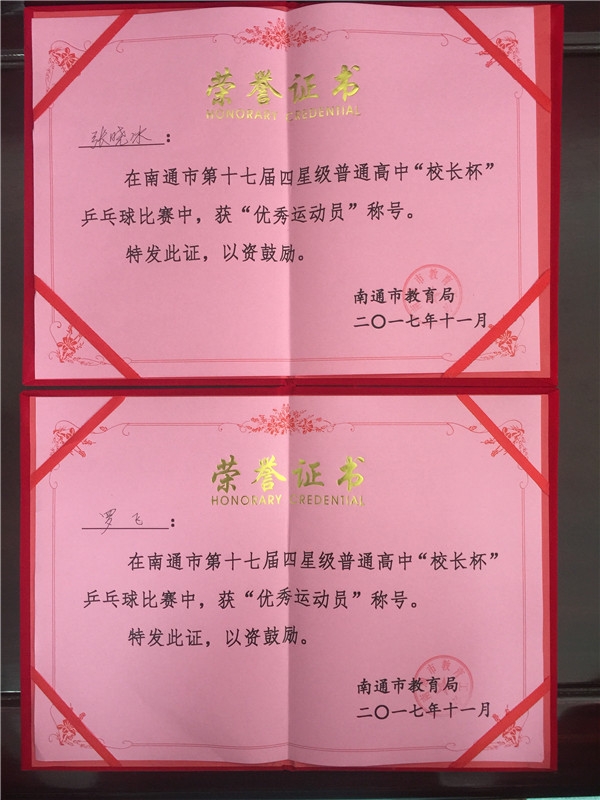 荣誉证书
HONORARY CREDENTIAL
张晓冰：
在南通市第十七届四星级普通高中“校长杯”
乒乓球比赛中，获“优秀运动员”称号。
特发此证，以资鼓励。
南通市教育局
二〇一七年十一月
荣誉证书
HONORARY CREDENTIAL
罗飞：
在南通市第十七届四星级普通高中“校长杯”
乒乓球比赛中，获“优秀运动员”称号。
特发此证，以资鼓励。
南通市教育局
二〇一七年十一月